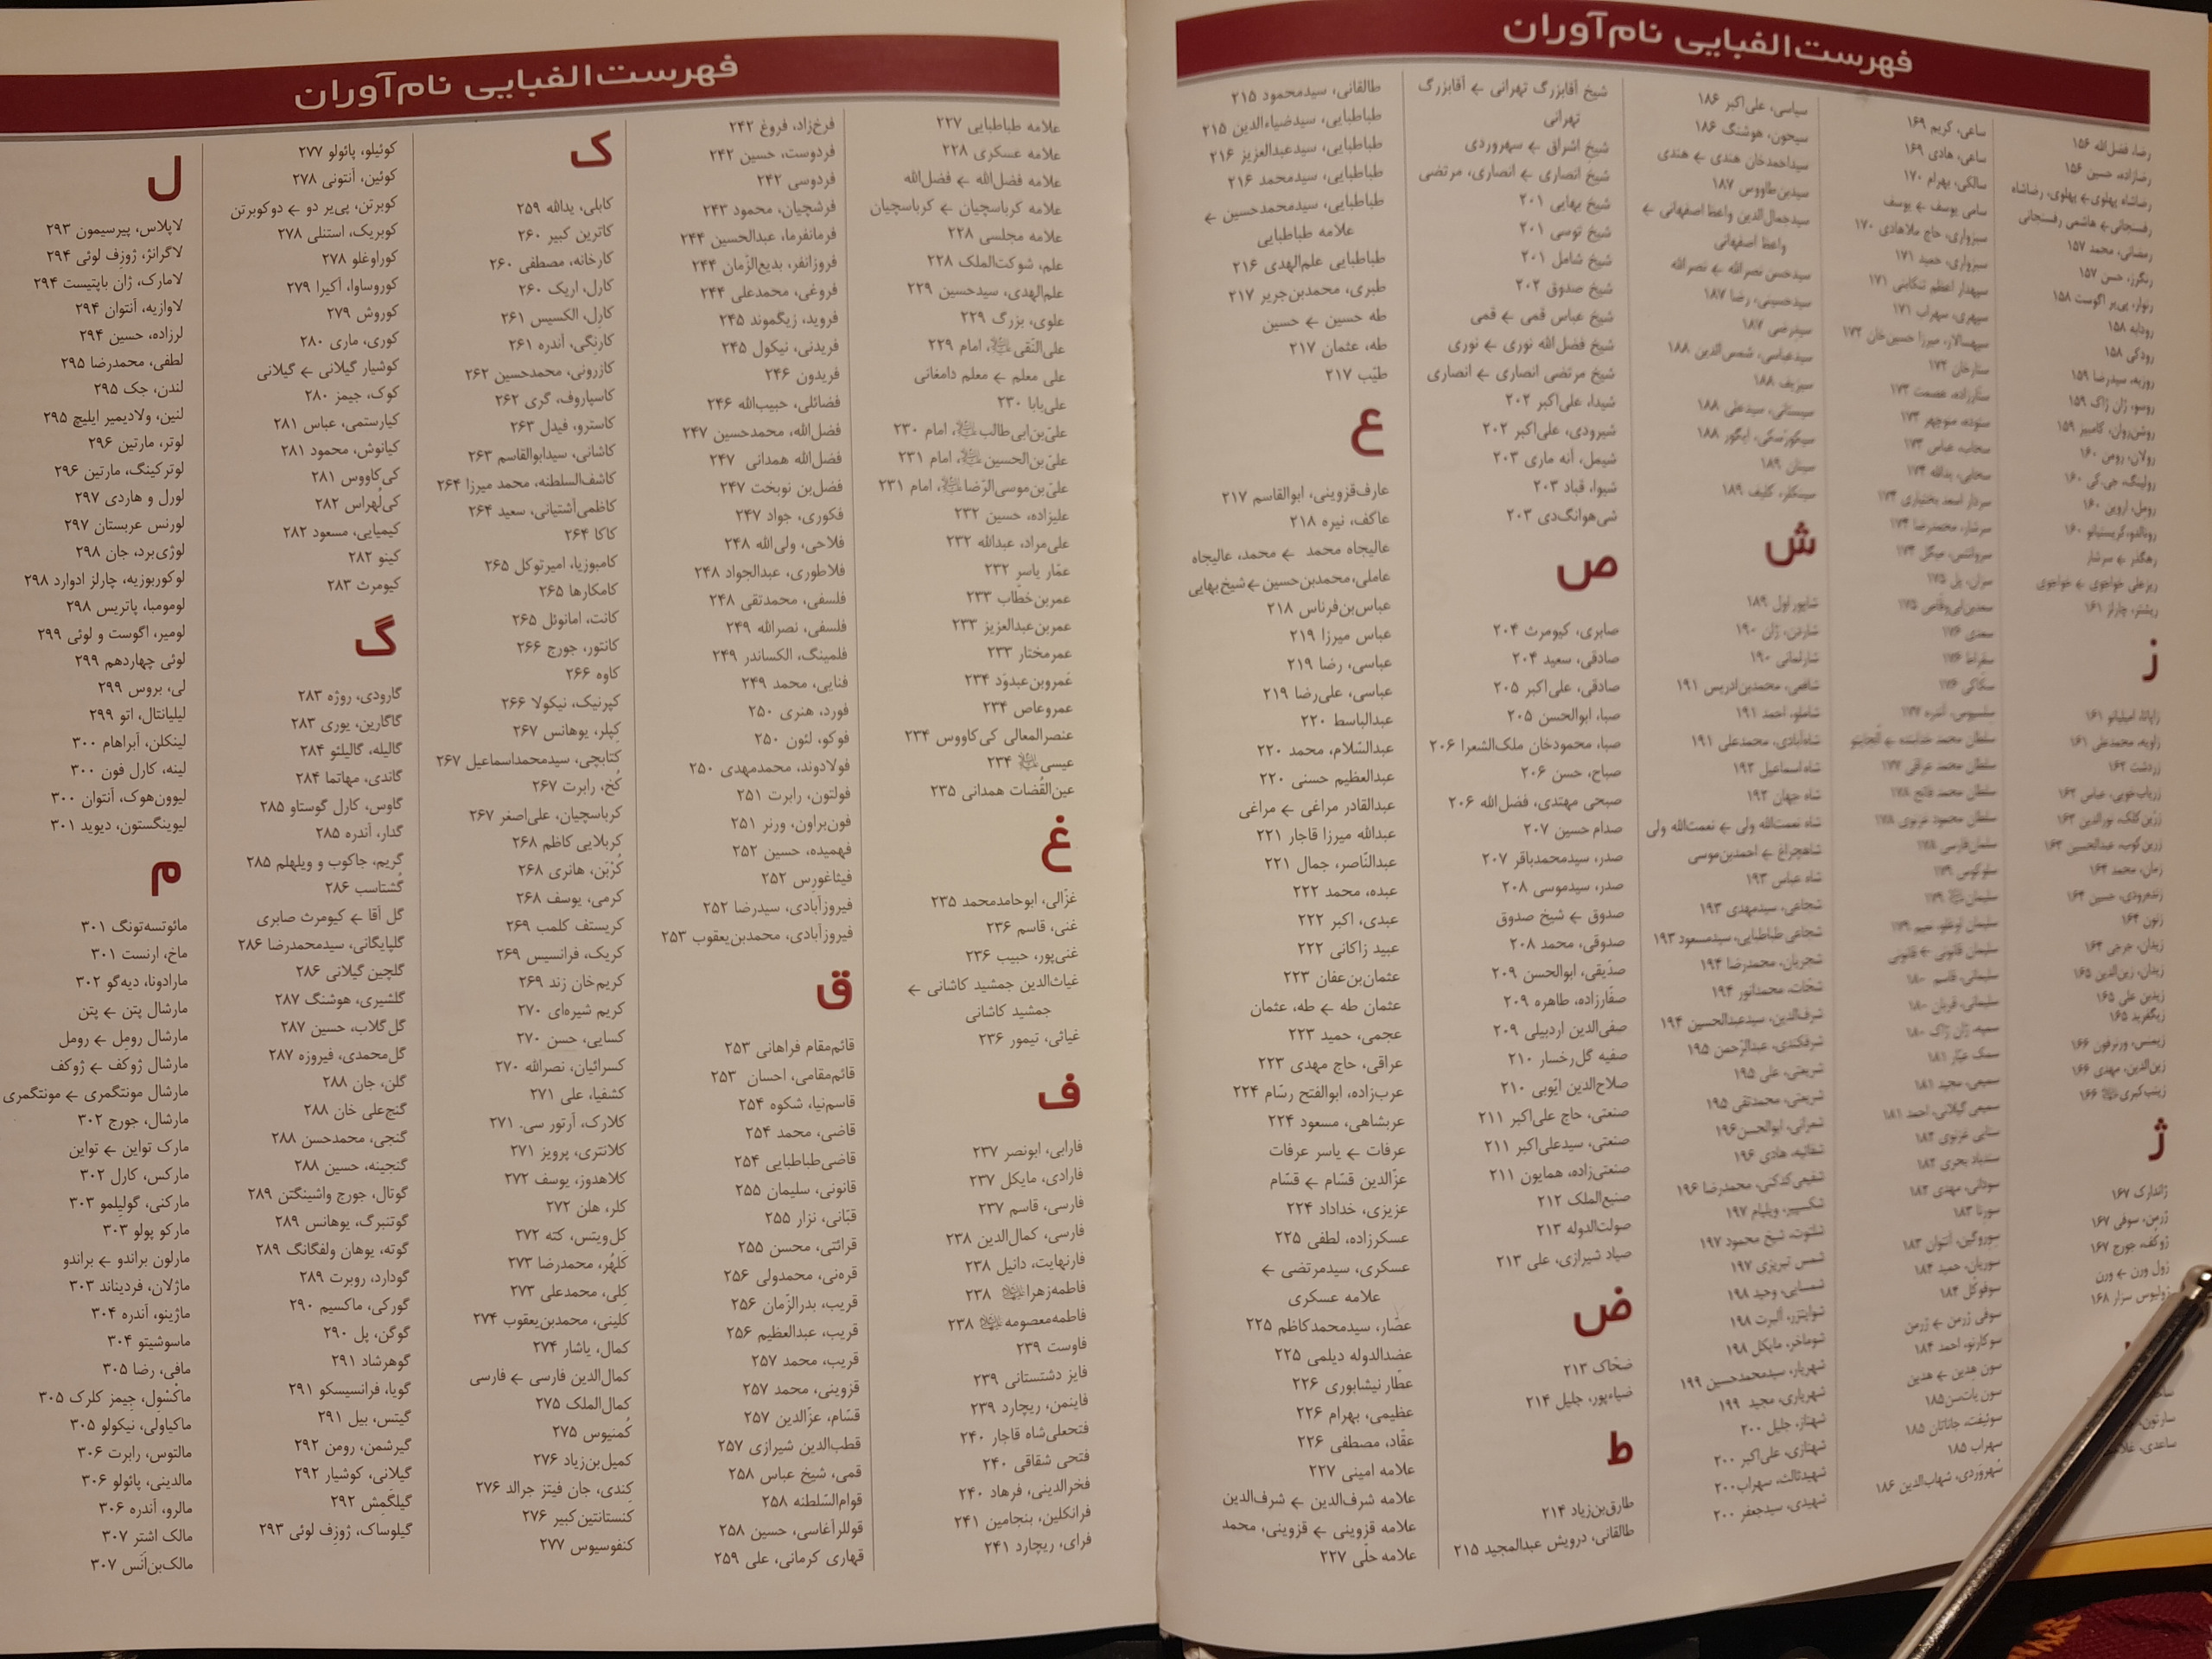 فهرست‌الفبایی نام‌آوران
رضا، فضل‌الله ۱۵۶
رضازاده، حسین ۱۵۶
رضاشاه پهلوی ← پهلوی، رضاشاه
رفسنجانی ← هاشمی رفسنجانی
رمضانی، محمد ۱۵۷
رنگرز، حسن ۱۵۷
رنوار، پی‌یر اگوست ۱۵۸
رودابه ۱۵۸
رودکی ۱۵۸
روزبه، سیدرضا ۱۵۹
روسو، ژان ژاک ۱۵۹
روشن‌روان، کامبیز ۱۵۹
رولان، رومن ۱۶۰
رولینگ، جی.کی ۱۶۰
رومل، اروین ۱۶۰
رونالدو، کریستیانو ۱۶۰
رهگذر ← سرشار
ریزعلی خواجوی ← خواجوی
ریشتر، چارلز ۱۶۱
ز
زاپاتا، امیلیانو ۱۶۱
زاویه، محمدعلی ۱۶۱
زردشت ۱۶۲
زریاب‌خویی، عباس ۱۶۲
زرین‌کلک، نورالدین ۱۶۲
زرین‌کوب، عبدالحسین ۱۶۳
زمان، محمد ۱۶۳
زنده‌رودی، حسین ۱۶۴
زنون ۱۶۴
زیدان، جرجی ۱۶۴
زیدان، زین‌الدین ۱۶۵
زیدبن علی ۱۶۵
زیگفرید ۱۶۵
زیمنس، ورنرفون ۱۶۶
زین‌الدین، مهدی ۱۶۶
زینب‌کبری ۱۶۶
ژ
ژاندارک ۱۶۷
ژرمن، سوفی ۱۶۷
ژوکف، جورج ۱۶۷
ژول ورن ← ورن
ژولیوس سزار ۱۶۸
ساعی، کریم ۱۶۹
ساعی، هادی ۱۶۹
سالکی، بهرام ۱۷۰
سامی یوسف ← یوسف
سبزواری، حاج ملاهادی ۱۷۰
سبزواری، حمید ۱۷۱
سپهدار اعظم تنکابنی ۱۷۱
سپهری، سهراب ۱۷۱
سپهسالار، میرزا حسین‌خان ۱۷۲
ستارخان ۱۷۲
ستارزاده، عصمت ۱۷۳
ستوده، منوچهر ۱۷۳
سحاب، عباس ۱۷۳
سحابی، یدالله ۱۷۳
سردار اسعد بختیاری ۱۷۴
سرشار، محمدرضا ۱۷۴
سروانتس، میگل ۱۷۴
سزان، پل ۱۷۵
سعدبن‌ابی‌وقاص ۱۷۵
سعدی ۱۷۶
سقراط ۱۷۶
سکاکی ۱۷۶
سلسیوس، آندره ۱۷۷
سلطان محمد خدابنده ← الجایتو
سلطان محمد عراقی ۱۷۷
سلطان محمد فاتح ۱۷۸
سلطان محمود غزنوی ۱۷۸
سلمان‌فارسی ۱۷۸
سلوکوس ۱۷۹
سلیمان ۱۷۹
سلیمان اوغلو، نعیم ۱۷۹
سلیمان قانونی ← قانونی
سلیمانی، قاسم ۱۸۰
سلیمانی، قربان ۱۸۰
سمپه، ژان ژاک ۱۸۰
سمک عیّار ۱۸۱
سمیعی، مجید ۱۸۱
سمیعی گیلانی، احمد ۱۸۱
سنایی غزنوی ۱۸۲
سندباد بحری ۱۸۲
سودانی، مهدی ۱۸۲
سورنا ۱۸۳
سوروگین، آنتوان ۱۸۳
سوریان، حمید ۱۸۳
سوفوکل ۱۸۴
سوفی ژرمن ← ژرمن
سوکارنو، احمد ۱۸۴
سون هدین ← هدین
سون یات‌سن ۱۸۵
سوئیفت، جاناتان ۱۸۵
سهراب ۱۸۵
سُهروردی، شهاب‌الدین ۱۸۶
سیاسی، علی‌اکبر ۱۸۶
سیحون، هوشنگ ۱۸۶
سیداحمدخان هندی ← هندی
سیدبن‌طاووس ۱۸۷
سیدجمال‌الدین واعظ اصفهانی ←
واعظ اصفهانی
سیدحسن نصرالله ← نصرالله
سیدحسینی، رضا ۱۸۷
سیدرضی ۱۸۷
سیدعباسی، شمس‌الدین ۱۸۸
سیزیف ۱۸۸
سیستانی، سیدعلی ۱۸۸
سیکورسکی، ایگور ۱۸۸
سینان ۱۸۹
سینکلر، کلیف ۱۸۹
ش
شاپور اول ۱۸۹
شاردن، ژان ۱۹۰
شارلمانی ۱۹۰
شافعی، محمدبن‌ادریس ۱۹۱
شاملو، احمد ۱۹۱
شاه‌آبادی، محمدعلی ۱۹۱
شاه‌اسماعیل ۱۹۲
شاه جهان ۱۹۲
شاه نعمت‌الله ولی ← نعمت‌الله ولی
شاهچراغ ← احمدبن‌موسی
شاه عباس ۱۹۳
شجاعی، سیدمهدی ۱۹۳
شجاعی طباطبایی، سیدمسعود ۱۹۳
شجریان، محمدرضا ۱۹۴
شحات، محمدانور ۱۹۴
شرف‌الدین، سیدعبدالحسین ۱۹۴
شرفکندی، عبدالرّحمن ۱۹۵
شریعتی، علی ۱۹۵
شریعتی، محمدتقی ۱۹۵
شعرانی، ابوالحسن ۱۹۶
شفائیه، هادی ۱۹۶
شفیعی‌کدکنی، محمدرضا ۱۹۶
شکسپیر، ویلیام ۱۹۷
شلتوت، شیخ محمود ۱۹۷
شمس تبریزی ۱۹۷
شمسایی، وحید ۱۹۸
شوایتزر، آلبرت ۱۹۸
شوماخر، مایکل ۱۹۸
شهریار، سیدمحمدحسین ۱۹۹
شهریاری، مجید ۱۹۹
شهناز، جلیل ۲۰۰
شهنازی، علی‌اکبر ۲۰۰
شهیدثالث، سهراب ۲۰۰
شهیدی، سیدجعفر ۲۰۰
شیخ آقابزرگ تهرانی ← آقابزرگ
تهرانی
شیخ اشراق ← سهروردی
شیخ انصاری ← انصاری، مرتضی
شیخ بهایی ۲۰۱
شیخ توسی ۲۰۱
شیخ شامل ۲۰۱
شیخ صدوق ۲۰۲
شیخ عباس قمی ← قمی
شیخ فضل‌الله نوری ← نوری
شیخ مرتضی انصاری ← انصاری
شیدا، علی‌اکبر ۲۰۲
شیرودی، علی‌اکبر ۲۰۲
شیمل، آنه ماری ۲۰۳
شیوا، قباد ۲۰۳
شی‌هوانگ‌دی ۲۰۳
ص
صابری، کیومرث ۲۰۴
صادقی، سعید ۲۰۴
صادقی، علی‌اکبر ۲۰۵
صبا، ابوالحسن ۲۰۵
صبا، محمودخان ملک‌الشعرا ۲۰۶
صباح، حسن ۲۰۶
صبحی مهتدی، فضل‌الله ۲۰۶
صدام حسین ۲۰۷
صدر، سیدمحمدباقر ۲۰۷
صدر، سیدموسی ۲۰۸
صدوق ← شیخ صدوق
صدوقی، محمد ۲۰۸
صدّیقی، ابوالحسن ۲۰۹
صفّارزاده، طاهره ۲۰۹
صفی‌الدین اردبیلی ۲۰۹
صفیه گل‌رخسار ۲۱۰
صلاح‌الدین ایّوبی ۲۱۰
صنعتی، حاج علی‌اکبر ۲۱۱
صنعتی، سیدعلی‌اکبر ۲۱۱
صنعتی‌زاده، همایون ۲۱۱
صنیع‌الملک ۲۱۲
صولت‌الدوله ۲۱۳
صیاد شیرازی، علی ۲۱۳
ض
ضحّاک ۲۱۳
ضیاءپور، جلیل ۲۱۴
ط
طارق‌بن‌زیاد ۲۱۴
طالقانی، درویش عبدالمجید ۲۱۵
طالقانی، سیدمحمود ۲۱۵
طباطبایی، سیدضیاءالدین ۲۱۵
طباطبایی، سیدعبدالعزیز ۲۱۶
طباطبایی، سیدمحمد ۲۱۶
طباطبایی، سیدمحمدحسین ←
علامه طباطبایی
طباطبایی علم‌الهدی ۲۱۶
طبری، محمدبن‌جریر ۲۱۷
طه حسین ← حسین
طه، عثمان ۲۱۷
طیّب ۲۱۷
ع
عارف‌قزوینی، ابوالقاسم ۲۱۷
عاکف، نیره ۲۱۸
عالیجاه محمد ← محمد، عالیجاه
عاملی،محمدبن‌حسین ← شیخ‌بهایی
عباس‌بن‌فرناس ۲۱۸
عباس میرزا ۲۱۹
عباسی، رضا ۲۱۹
عباسی، علی‌رضا ۲۱۹
عبدالباسط ۲۲۰
عبدالسّلام، محمد ۲۲۰
عبدالعظیم حسنی ۲۲۰
عبدالقادر مراغی ← مراغی
عبدالله میرزا قاجار ۲۲۱
عبدالنّاصر، جمال ۲۲۱
عبده، محمد ۲۲۲
عبدی، اکبر ۲۲۲
عبید زاکانی ۲۲۲
عثمان‌بن‌عفان ۲۲۳
عثمان طه ← طه، عثمان
عجمی، حمید ۲۲۳
عراقی، حاج مهدی ۲۲۳
عرب‌زاده، ابوالفتح رسّام ۲۲۴
عربشاهی، مسعود ۲۲۴
عرفات ← یاسر عرفات
عزّالدین قسّام ← قسّام
عزیزی، خداداد ۲۲۴
عسکرزاده، لطفی ۲۲۵
عسکری، سیدمرتضی ←
علامه عسکری
عصّار، سیدمحمدکاظم ۲۲۵
عضدالدوله دیلمی ۲۲۵
عطّار نیشابوری ۲۲۶
عظیمی، بهرام ۲۲۶
عقّاد، مصطفی ۲۲۶
علامه امینی ۲۲۷
علامه شرف‌الدین ← شرف‌الدین
علامه قزوینی ← قزوینی، محمد
علامه حلّی ۲۲۷
فهرست‌الفبایی نام‌آوران
علامه طباطبایی ۲۲۷
علامه عسکری ۲۲۸
علامه فضل‌الله ← فضل‌الله
علامه کرباسچیان ← کرباسچیان
علامه مجلسی ۲۲۸
علم، شوکت‌الملک ۲۲۸
علم‌الهدی، سیدحسین ۲۲۹
علوی، بزرگ ۲۲۹
علی‌النّقی، امام ۲۲۹
علی معلم ← معلم دامغانی
علی‌بابا ۲۳۰
علیّ‌بن‌ابی‌طالب، امام ۲۳۰
علیّ‌بن‌الحسین، امام ۲۳۱
علیّ‌بن‌موسی‌الرّضا، امام ۲۳۱
علیزاده، حسین ۲۳۲
علی‌مراد، عبدالله ۲۳۲
عمّار یاسر ۲۳۲
عمربن‌خطاب ۲۳۳
عمربن‌عبدالعزیز ۲۳۳
عمرمختار ۲۳۳
عَمروبن‌عبدوَد ۲۳۴
عمروعاص ۲۳۴
عنصرالمعالی کی‌کاووس ۲۳۴
عیسی ۲۳۴
عین‌القُضات همدانی ۲۳۵
غ
غزّالی، ابوحامدمحمد ۲۳۵
غنی، قاسم ۲۳۶
غنی‌پور، حبیب ۲۳۶
غیاث‌الدین جمشید کاشانی ←
جمشید کاشانی
غیاثی، تیمور ۲۳۶
ف
فارابی، ابونصر ۲۳۷
فارادی، مایکل ۲۳۷
فارسی، قاسم ۲۳۷
فارسی، کمال‌الدین ۲۳۸
فارنهایت، دانیل ۲۳۸
فاطمه‌زهرا ۲۳۸
فاطمه‌معصومه ۲۳۸
فاوست ۲۳۹
فایز دشتستانی ۲۳۹
فاینمن، ریچارد ۲۳۹
فتحعلی‌شاه قاجار ۲۴۰
فتحی شقاقی ۲۴۰
فخرالدینی، فرهاد ۲۴۰
فرانکلین، بنجامین ۲۴۱
فرای، ریچارد ۲۴۱
فرخ‌زاد، فروغ ۲۴۲
فردوست، حسین ۲۴۲
فردوسی ۲۴۲
فرشچیان، محمود ۲۴۳
فرمانفرما، عبدالحسین ۲۴۴
فروزانفر، بدیع‌الزّمان ۲۴۴
فروغی، محمدعلی ۲۴۴
فروید، زیگموند ۲۴۵
فریدنی، نیکول ۲۴۵
فریدون ۲۴۶
فضائلی، حبیب‌الله ۲۴۶
فضل‌الله، محمدحسین ۲۴۷
فضل‌الله همدانی ۲۴۷
فضل‌بن نوبخت ۲۴۷
فکوری، جواد ۲۴۷
فلاحی، ولی‌الله ۲۴۸
فلاطوری، عبدالجواد ۲۴۸
فلسفی، محمدتقی ۲۴۸
فلسفی، نصرالله ۲۴۹
فلمینگ، الکساندر ۲۴۹
فنایی، محمد ۲۴۹
فورد، هنری ۲۵۰
فوکو، لئون ۲۵۰
فولادوند، محمدمهدی ۲۵۰
فولتون، رابرت ۲۵۱
فون‌براون، ورنر ۲۵۱
فهمیده، حسین ۲۵۲
فیثاغورس ۲۵۲
فیروزآبادی، سیدرضا ۲۵۲
فیروزآبادی، محمدبن‌یعقوب ۲۵۳
ق
قائم‌مقام فراهانی ۲۵۳
قائم‌مقامی، احسان ۲۵۳
قاسم‌نیا، شکوه ۲۵۴
قاضی، محمد ۲۵۴
قاضی‌طباطبایی ۲۵۴
قانونی، سلیمان ۲۵۵
قبّانی، نزار ۲۵۵
قرائتی، محسن ۲۵۵
قره‌نی، محمدولی ۲۵۶
قریب، بدرالزّمان ۲۵۶
قریب، عبدالعظیم ۲۵۶
قریب، محمد ۲۵۷
قزوینی، محمد ۲۵۷
قسّام، عزّالدین ۲۵۷
قطب‌الدین شیرازی ۲۵۷
قمی، شیخ عباس ۲۵۸
قوام‌السّلطنه ۲۵۸
قوللرآغاسی، حسین ۲۵۸
قهاری کرمانی، علی ۲۵۹
ک
کابلی، یدالله ۲۵۹
کاترین کبیر ۲۶۰
کارخانه، مصطفی ۲۶۰
کارل، اریک ۲۶۰
کارِل، الکسیس ۲۶۱
کارنِگی، آندره ۲۶۱
کازرونی، محمدحسین ۲۶۲
کاسپاروف، گری ۲۶۲
کاسترو، فیدل ۲۶۳
کاشانی، سیدابوالقاسم ۲۶۳
کاشف‌السلطنه، محمد میرزا ۲۶۴
کاظمی‌آشتیانی، سعید ۲۶۴
کاکا ۲۶۴
کامبوزیا، امیرتوکل ۲۶۵
کامکارها ۲۶۵
کانت، امانوئل ۲۶۵
کانتور، جورج ۲۶۶
کاوه ۲۶۶
کپرنیک، نیکولا ۲۶۶
کپلر، یوهانس ۲۶۷
کتابچی، سیدمحمداسماعیل ۲۶۷
کُخ، رابرت ۲۶۷
کرباسچیان، علی‌اصغر ۲۶۷
کربلایی کاظم ۲۶۸
کُرْبَن، هانری ۲۶۸
کرمی، یوسف ۲۶۸
کریستف کلمب ۲۶۹
کریک، فرانسیس ۲۶۹
کریم‌خان زند ۲۶۹
کریم شیره‌ای ۲۷۰
کسایی، حسن ۲۷۰
کسرائیان، نصرالله ۲۷۰
کشفیا، علی ۲۷۱
کلارک، آرتور سی. ۲۷۱
کلانتری، پرویز ۲۷۱
کلاهدوز، یوسف ۲۷۲
کلر، هلن ۲۷۲
کل‌ویتس، کته ۲۷۲
کَلهُر، محمدرضا ۲۷۳
کلی، محمدعلی ۲۷۳
کُلینی، محمدبن‌یعقوب ۲۷۴
کمال، یاشار ۲۷۴
کمال‌الدین فارسی ← فارسی
کمال‌الملک ۲۷۵
کُمنیوس ۲۷۵
کمیل‌بن‌زیاد ۲۷۶
کِندی، جان فیتز جرالد ۲۷۶
کنستانتین‌کبیر ۲۷۶
کنفوسیوس ۲۷۷
کوئیلو، پائولو ۲۷۷
کوئین، آنتونی ۲۷۸
کوبرتن، پی‌یر دو ← دوکوبرتن
کوبریک، استنلی ۲۷۸
کوراوغلو ۲۷۸
کوروساوا، آکیرا ۲۷۹
کوروش ۲۷۹
کوری، ماری ۲۸۰
کوشیار گیلانی ← گیلانی
کوک، جیمز ۲۸۰
کیارستمی، عباس ۲۸۱
کیانوش، محمود ۲۸۱
کی‌کاووس ۲۸۱
کی‌لُهراس ۲۸۲
کیمیایی، مسعود ۲۸۲
کینو ۲۸۲
کیومرث ۲۸۳
گ
گارودی، روژه ۲۸۳
گاگارین، یوری ۲۸۳
گالیله، گالیلئو ۲۸۴
گاندی، مهاتما ۲۸۴
گاوس، کارل گوستاو ۲۸۵
گدار، آندره ۲۸۵
گریم، جاکوب و ویلهلم ۲۸۵
گُشتاسب ۲۸۶
گل آقا ← کیومرث صابری
گلپایگانی، سیدمحمدرضا ۲۸۶
گلچین گیلانی ۲۸۶
گلشیری، هوشنگ ۲۸۷
گل‌گلاب، حسین ۲۸۷
گل‌محمدی، فیروزه ۲۸۷
گلن، جان ۲۸۸
گنج‌علی خان ۲۸۸
گنجی، محمدحسن ۲۸۸
گنجینه، حسین ۲۸۸
گوتال، جورج واشینگتن ۲۸۹
گوتنبرگ، یوهانس ۲۸۹
گوته، یوهان ولفگانگ ۲۸۹
گودارد، روبرت ۲۸۹
گورکی، ماکسیم ۲۹۰
گوگن، پل ۲۹۰
گوهرشاد ۲۹۱
گویا، فرانسیسکو ۲۹۱
گیتس، بیل ۲۹۱
گیرشمن، رومن ۲۹۲
گیلانی، کوشیار ۲۹۲
گیلگَمِش ۲۹۲
گیلوساک، ژوزف لوئی ۲۹۳
ل
لاپلاس، پیرسیمون ۲۹۳
لاگرانژ، ژوزف لوئی ۲۹۴
لامارک، ژان باپتیست ۲۹۴
لاوازیه، آنتوان ۲۹۴
لرزاده، حسین ۲۹۴
لطفی، محمدرضا ۲۹۵
لندن، جک ۲۹۵
لنین، ولادیمیر ایلیچ ۲۹۵
لوتر، مارتین ۲۹۶
لوترکینگ، مارتین ۲۹۶
لورل و هاردی ۲۹۷
لورنس عربستان ۲۹۷
لوژی‌برد، جان ۲۹۸
لوکوربوزیه، چارلز ادوارد ۲۹۸
لومومبا، پاتریس ۲۹۸
لومیر، اگوست و لوئی ۲۹۹
لوئی چهاردهم ۲۹۹
لی، بروس ۲۹۹
لیلیانتال، اتو ۲۹۹
لینکلن، آبراهام ۳۰۰
لینه، کارل فون ۳۰۰
لیوون‌هوک، آنتوان ۳۰۰
لیوینگستون، دیوید ۳۰۱
م
مائوتسه‌تونگ ۳۰۱
ماخ، ارنست ۳۰۱
مارادونا، دیه‌گو ۳۰۲
مارشال پتن ← پتن
مارشال رومل ← رومل
مارشال ژوکف ← ژوکف
مارشال مونتگمری ← مونتگمری
مارشال، جورج ۳۰۲
مارک تواین ← تواین
مارکس، کارل ۳۰۲
مارکنی، گولیلمو ۳۰۳
مارکو پولو ۳۰۳
مارلون براندو ← براندو
ماژلان، فردیناند ۳۰۳
ماژینو، آندره ۳۰۴
ماسوشیتو ۳۰۴
مافی، رضا ۳۰۵
ماکْسْوِل، جیمز کلرک ۳۰۵
ماکیاولی، نیکولو ۳۰۵
مالتوس، رابرت ۳۰۶
مالدینی، پائولو ۳۰۶
مالرو، آندره ۳۰۶
مالک اشتر ۳۰۷
مالک‌بن‌اَنَس ۳۰۷